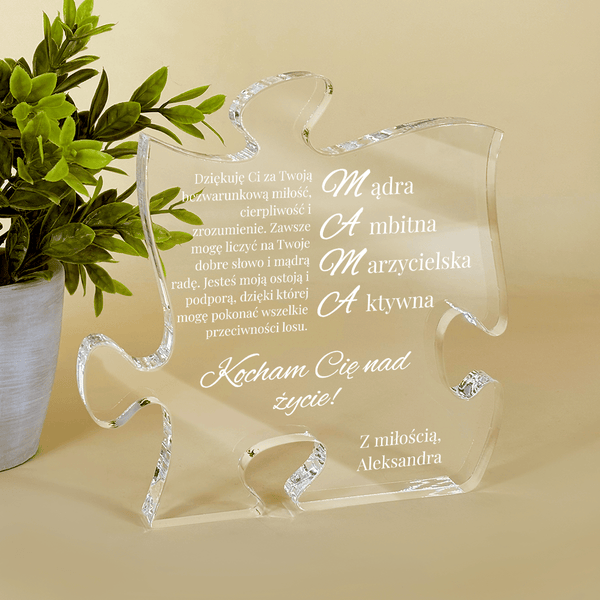 Dziękuję Ci za Twoją
bezwarunkową miłość,
cierpliwość i
zrozumienie. Zawsze
mogę liczyć na Twoje
dobre słowo i mądrą
radę. Jesteś moją ostoją i
podporą, dzięki której
mogę pokonać wszelkie
przeciwności losu.
Mądra
Ambitna
Marzycielska
Aktywna
Kocham Cię nad
życie!
Z miłością,
Aleksandra